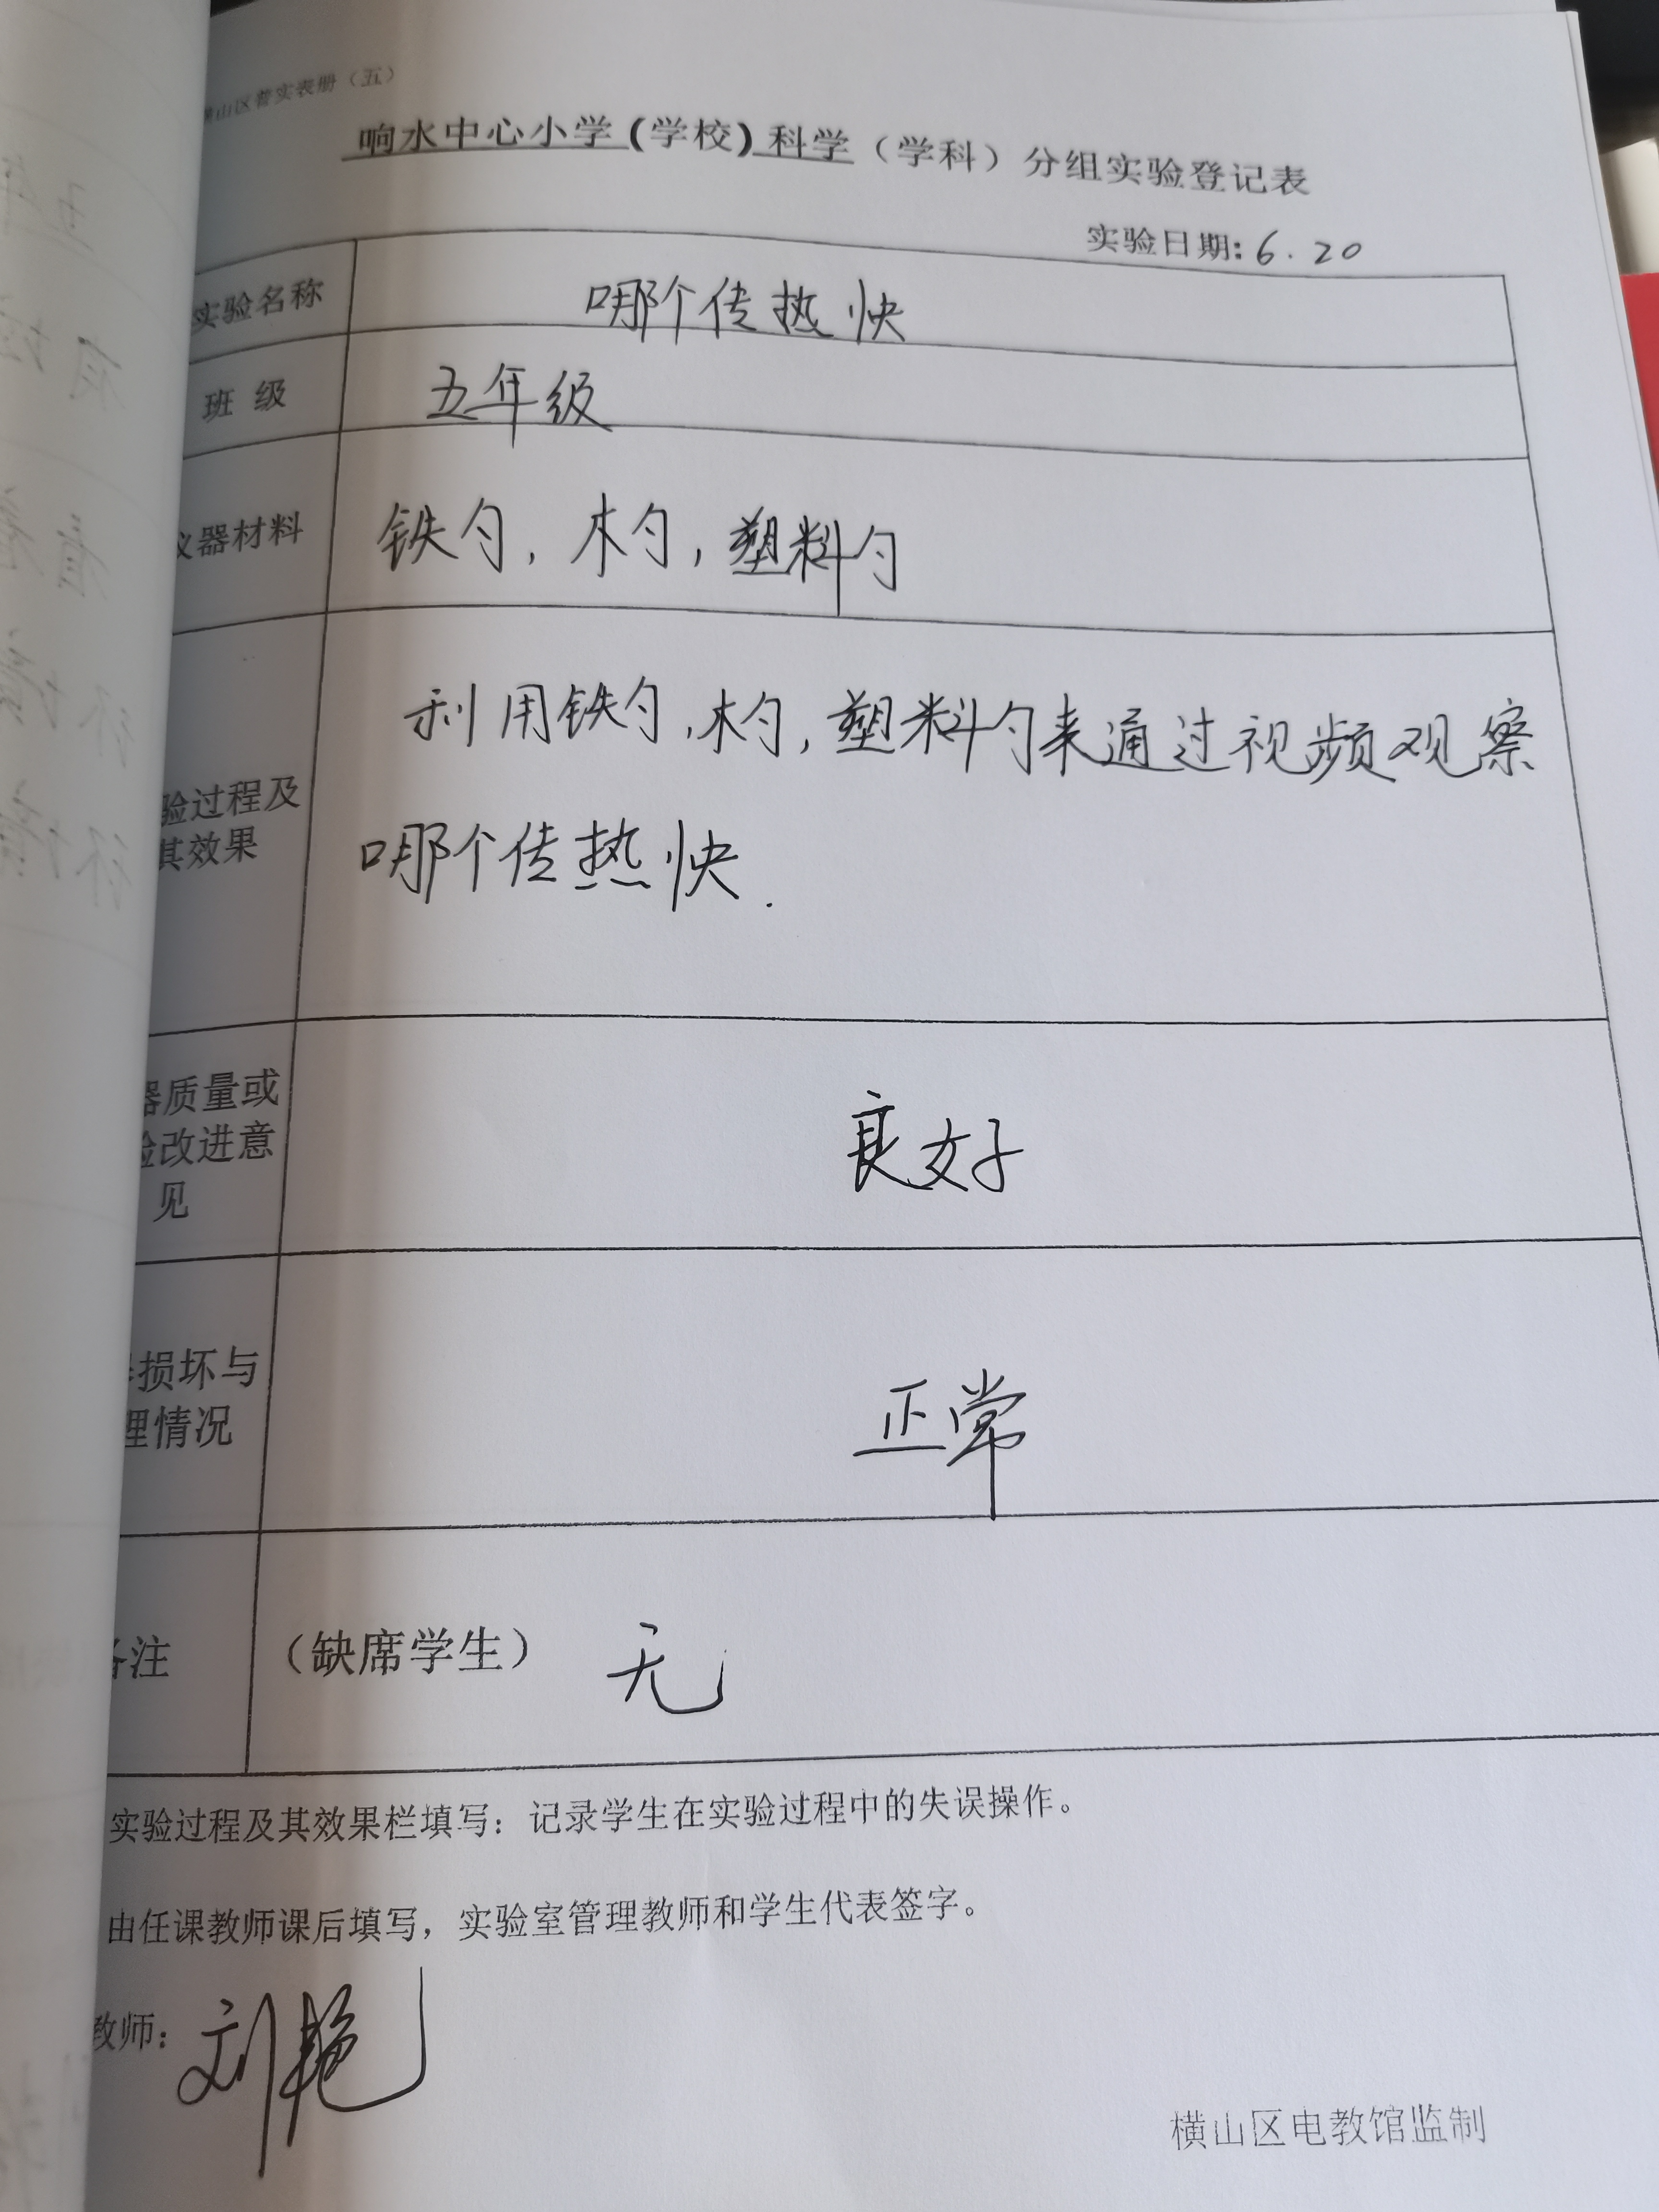 横山区普实表册（五）
响水中心小学(学校)科学（学科）分组实验登记表
实验日期:6.20
实验名称 哪个传热快
班 级 五年级
仪器材料 铁勺，木勺，塑料勺
利用铁勺，木勺，塑料勺来通过视频观察
验过程及
其效果
哪个传热快.
器质量或
验改进意
见
良好
损坏与
理情况
正常
备注 （缺席学生） 无
实验过程及其效果栏填写：记录学生在实验过程中的失误操作。
由任课教师课后填写，实验室管理教师和学生代表签字。
教师: 刘艳
横山区电教馆监制